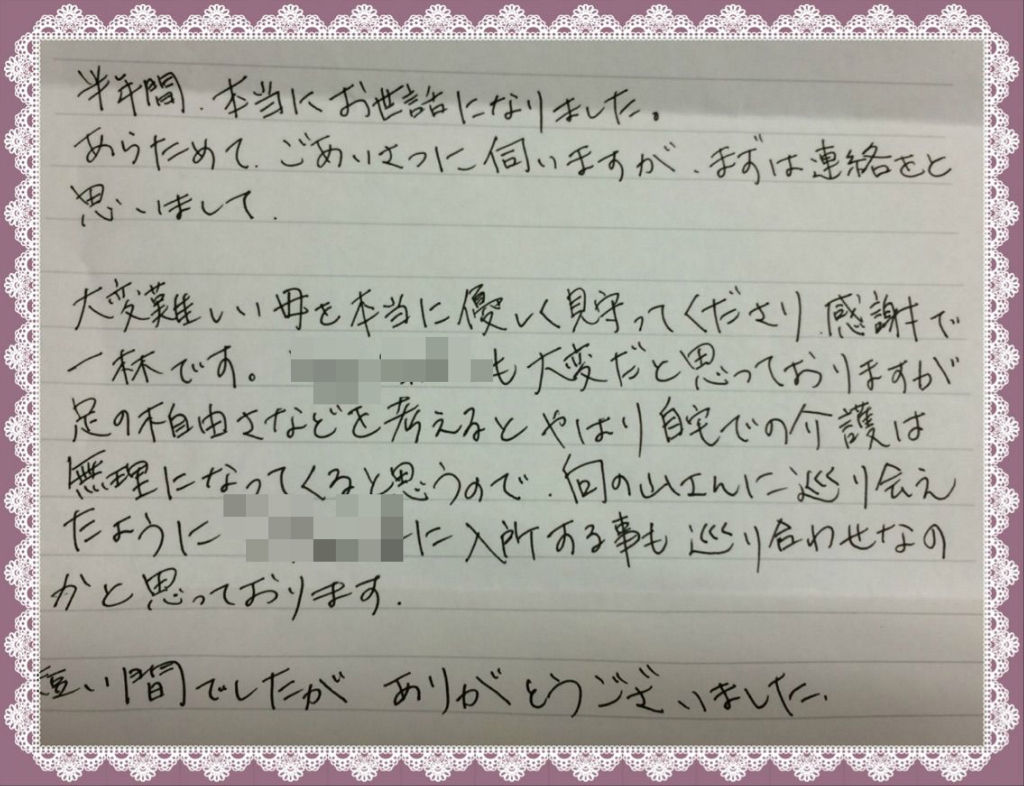 半年間、本当にお世話になりました。
あらためて、ごあいさつに伺いますが、まずは連絡をと
思いまして、
大変難しい母を本当に優しく見守ってくださり、感謝で
一杯です。 も大変だと思っておりますが
足の不自由さなどを考えるとやはり自宅での介護は
無理になってくると思うので、向の山さんに巡り会え
たように に入所する事も巡り合わせなの
かと思っております。
短い間でしたが ありがとうございました。